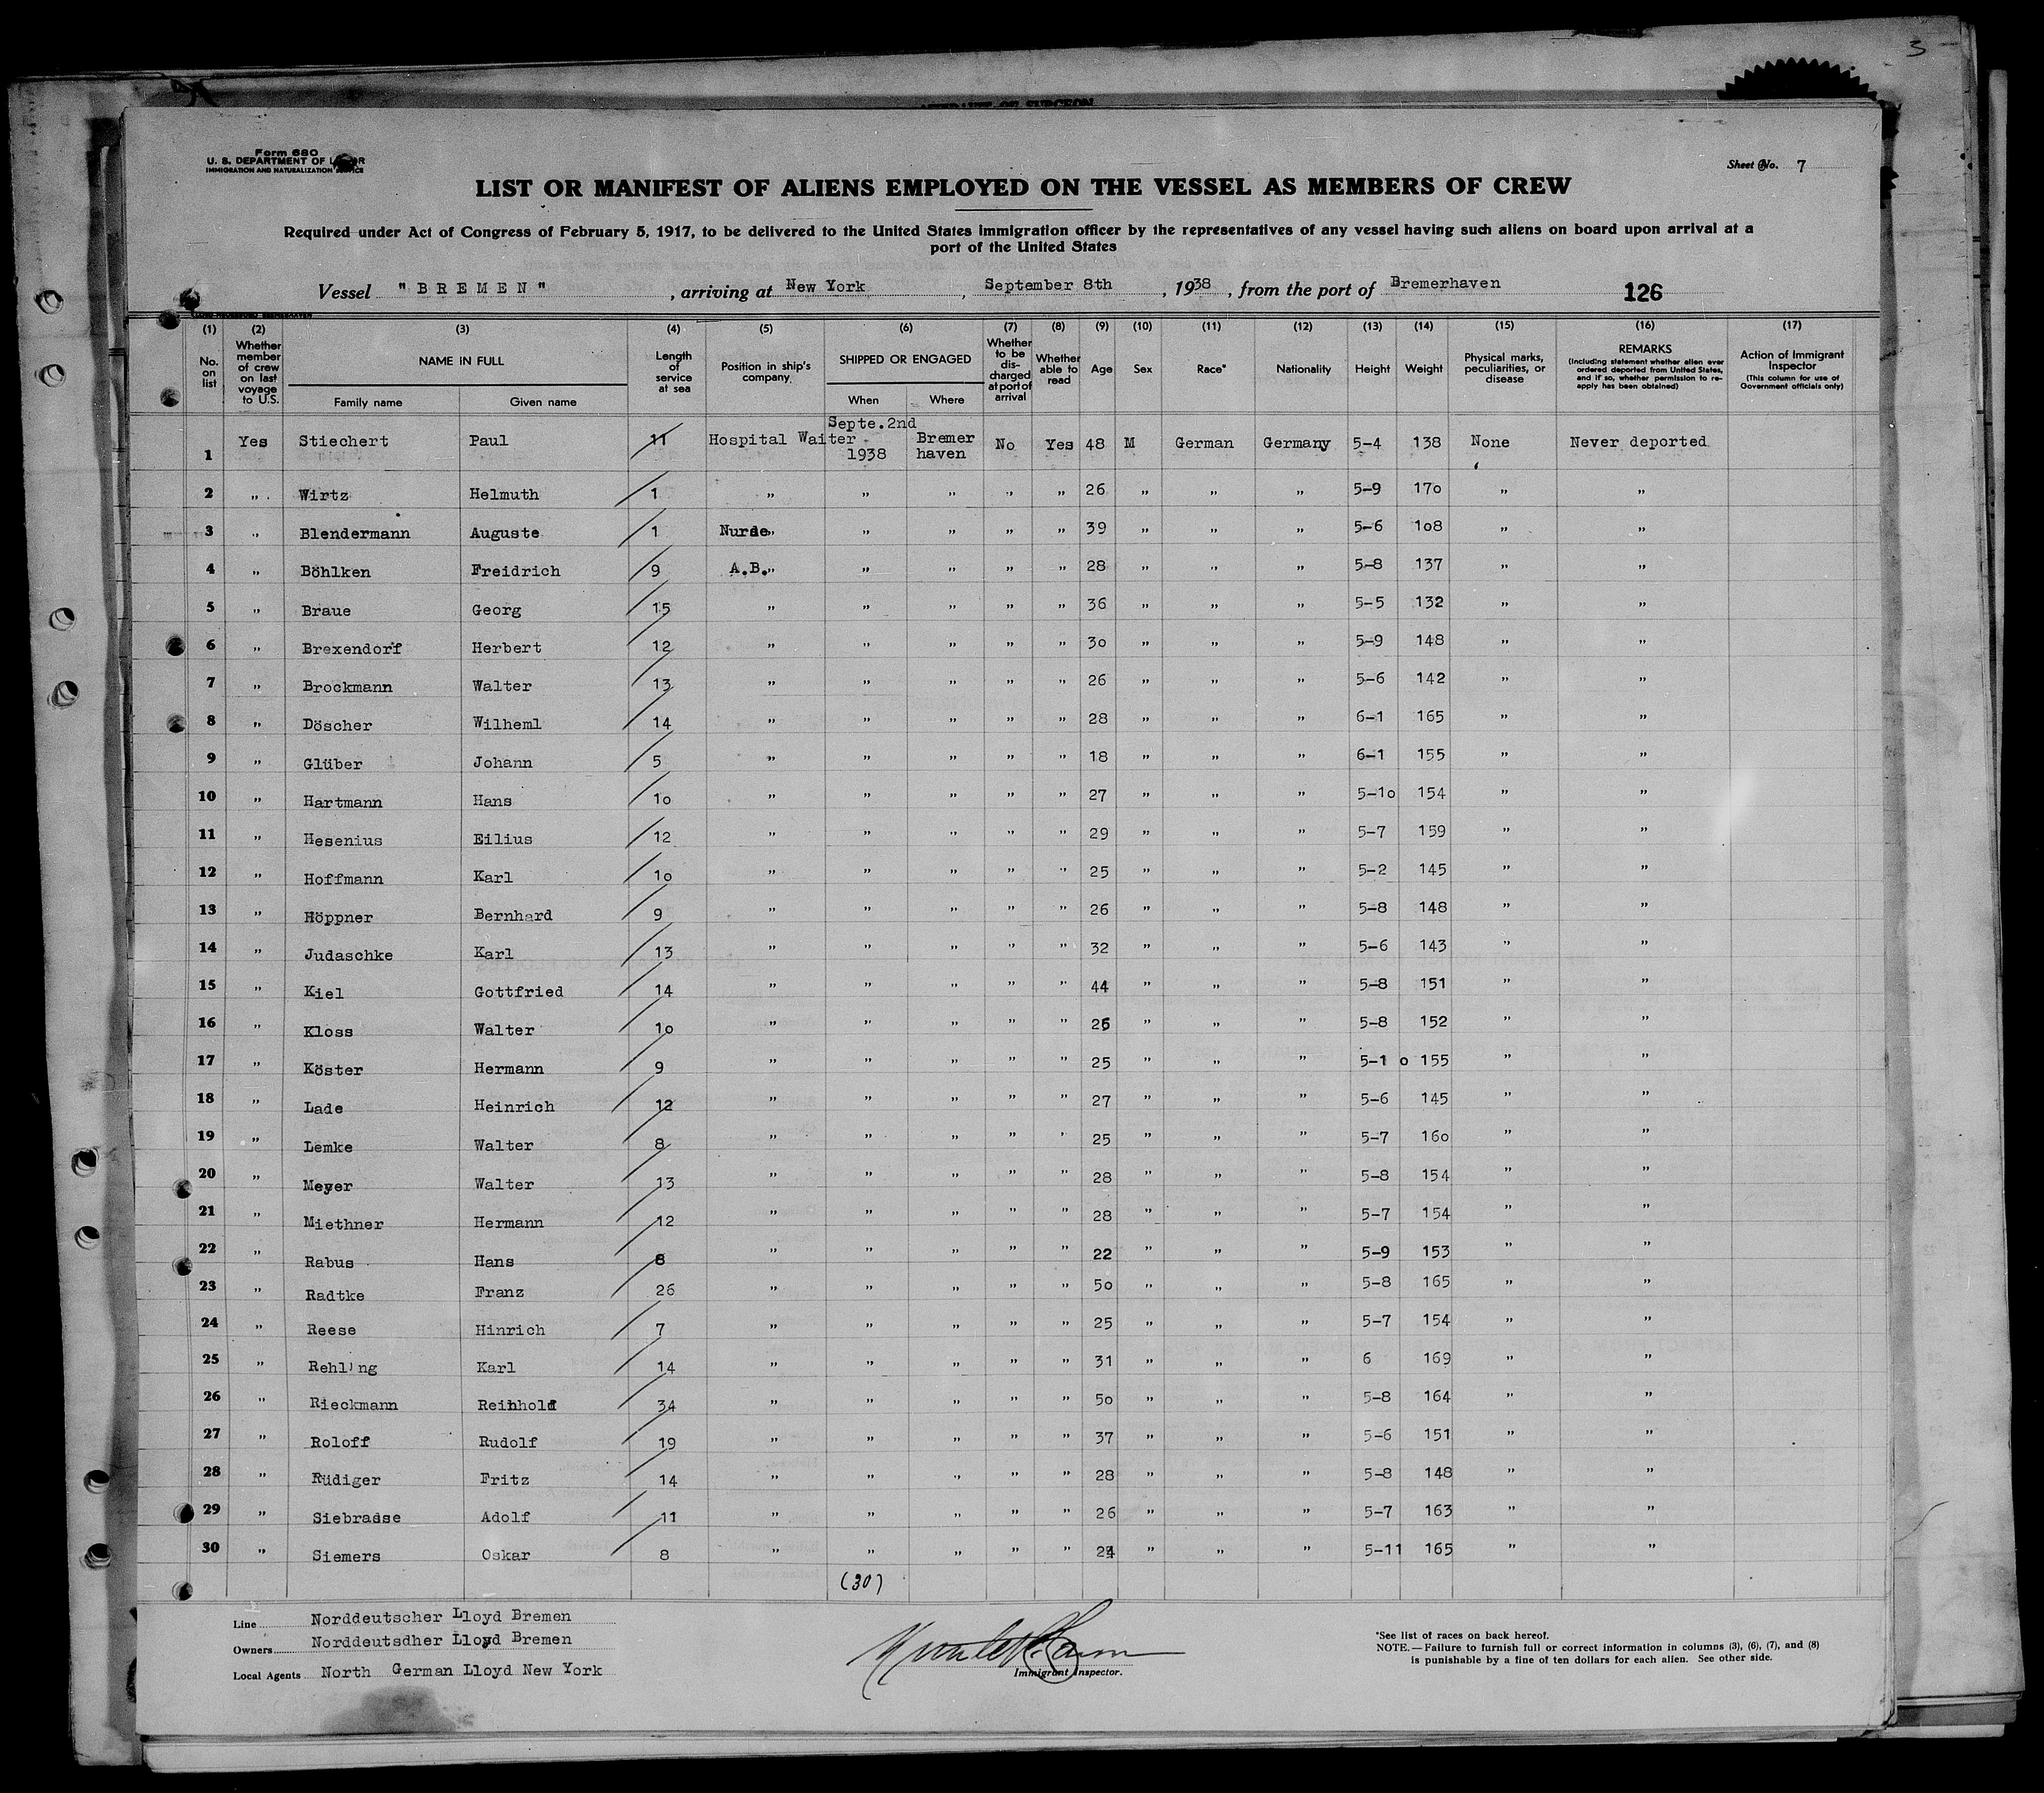 3
Form 680
U. S. DEPARTMENT OF LABOR
IMMIGRATION AND NATURALIZATION SERVICE
Sheet No. 7
LIST OR MANIFEST OF ALIENS EMPLOYED ON THE VESSEL AS MEMBERS OF CREW
Required under Act of Congress of February 5, 1917, to be delivered to the United States immigration officer by the representatives of any vessel having such aliens on board upon arrival at a
port of the United States
Vessel "BREMEN", arriving at New York, September 8th, 1938, from the port of Bremerhaven 126
(1) (2) (3) (4) (5) (6) (7) (8) (9) (10) (11) (12) (13) (14) (15) (16) (17)
No. on list
Whether member of crew on last voyage to U.S.
NAME IN FULL
Family name Given name
Length of service at sea
Position in ship's company
SHIPPED OR ENGAGED
When Where
Whether to be discharged at port of arrival
Whether able to read
Age Sex Race* Nationality Height Weight
Physical marks, peculiarities, or disease
REMARKS
(Including statement whether alien ever ordered deported from United States, and if so, whether permission to reapply has been obtained)
Action of Immigrant Inspector
(This column for use of Government officials only)
1 Yes Stiechert Paul 11 Hospital Waiter Septe.2nd 1938 Bremer haven No Yes 48 M German Germany 5-4 138 None Never deported
2 " Wirtz Helmuth 1 " " " " " 26 " " " 5-9 170 " "
3 " Blendermann Auguste 1 Nurse" " " " " 39 " " " 5-6 108 " "
4 " Böhlken Freidrich 9 A.B." " " " " 28 " " " 5-8 137 " "
5 " Braue Georg 15 " " " " " 36 " " " 5-5 132 " "
6 " Brexendorf Herbert 12 " " " " " 30 " " " 5-9 148 " "
7 " Brockmann Walter 13 " " " " " 26 " " " 5-6 142 " "
8 " Döscher Wilheml 14 " " " " " 28 " " " 6-1 165 " "
9 " Glüber Johann 5 " " " " " 18 " " " 6-1 155 " "
10 " Hartmann Hans 10 " " " " " 27 " " " 5-10 154 " "
11 " Hesenius Eilius 12 " " " " " 29 " " " 5-7 159 " "
12 " Hoffmann Karl 10 " " " " " 25 " " " 5-2 145 " "
13 " Höppner Bernhard 9 " " " " " 26 " " " 5-8 148 " "
14 " Judaschke Karl 13 " " " " " 32 " " " 5-6 143 " "
15 " Kiel Gottfried 14 " " " " " 44 " " " 5-8 151 " "
16 " Kloss Walter 10 " " " " " 26 " " " 5-8 152 " "
17 " Köster Hermann 9 " " " " " 25 " " " 5-1 0 155 " "
18 " Lade Heinrich 12 " " " " " 27 " " " 5-6 145 " "
19 " Lemke Walter 8 " " " " " 25 " " " 5-7 160 " "
20 " Meyer Walter 13 " " " " " 28 " " " 5-8 154 " "
21 " Miethner Hermann 12 " " " " " 28 " " " 5-7 154 " "
22 " Rabus Hans 8 " " " " " 22 " " " 5-9 153 " "
23 " Radtke Franz 26 " " " " " 50 " " " 5-8 165 " "
24 " Reese Hinrich 7 " " " " " 25 " " " 5-7 154 " "
25 " Rehling Karl 14 " " " " " 31 " " " 6 169 " "
26 " Rieckmann Reinhold 34 " " " " " 50 " " " 5-8 164 " "
27 " Roloff Rudolf 19 " " " " " 37 " " " 5-6 151 " "
28 " Rüdiger Fritz 14 " " " " " 28 " " " 5-8 148 " "
29 " Siebrasse Adolf 11 " " " " " 26 " " " 5-7 163 " "
30 " Siemers Oskar 8 " " " " " 24 " " " 5-11 165 " "
(30)
Line Norddeutscher Lloyd Bremen
Owners Norddeutsdher Lloyd Bremen
Local Agents North German Lloyd New York
Immigrant Inspector.
*See list of races on back hereof.
NOTE.—Failure to furnish full or correct information in columns (3), (6), (7), and (8)
is punishable by a fine of ten dollars for each alien. See other side.